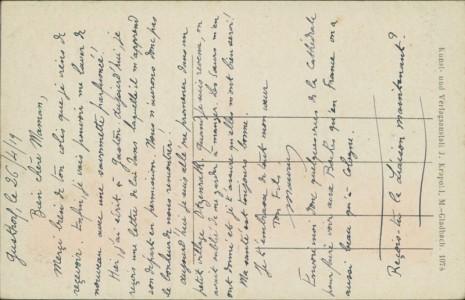 Gustorf, le 26/4/19
Bien chère Maman,
Merci bien de ton colis que je viens de
recevoir. Enfin, je vais pouvoir me laver de
nouveau avec une savonnette parfumée!!
Hier, j'ai écrit à Gaston. Aujourd'hui, je
reçois une lettre de lui dans laquelle il m'apprend
son départ en permission. Nous n'aurons donc pas
le bonheur de nous rencontrer!
Aujourd'hui je suis allé me promener dans un
petit village. Quand je suis revenu, on
avait oublié de me garder à manger. Les sœurs m'en
ont donné et je t'assure qu'elles m'ont bien servi!
Ma santé est toujours bonne.
Je t'embrasse de tout mon cœur
Ton Fils
Maurice
Envoie-moi donc quelques vues de la Cathédrale
pour faire voir aux Boches qu'en France on a
aussi beau qu'à Cologne.
Reçois-tu la Liaison maintenant?
Kunst- und Verlagsanstalt J. Krapohl, M.-Gladbach. 1078